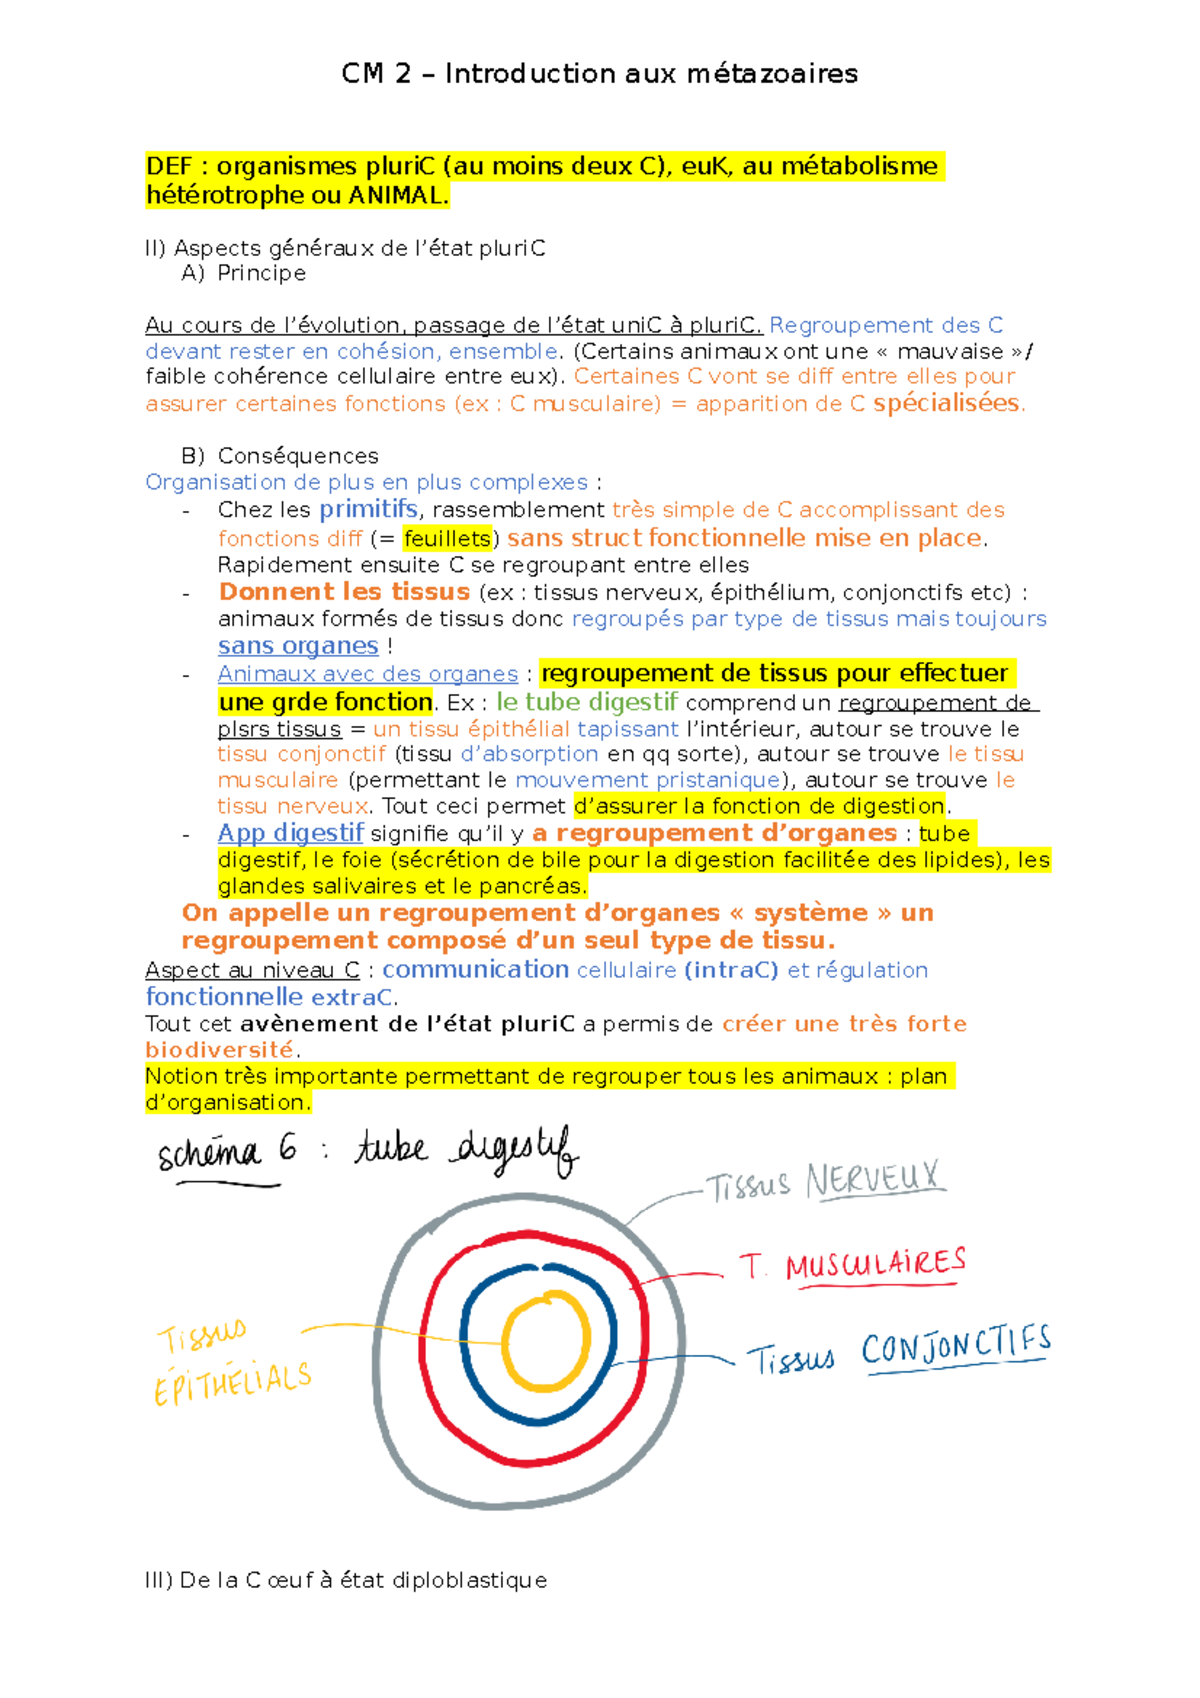 CM 2 – Introduction aux métazoaires
DEF : organismes pluriC (au moins deux C), euK, au métabolisme
hétérotrophe ou ANIMAL.
II) Aspects généraux de l’état pluriC
A) Principe
Au cours de l’évolution, passage de l’état uniC à pluriC. Regroupement des C
devant rester en cohésion, ensemble. (Certains animaux ont une « mauvaise »/
faible cohérence cellulaire entre eux). Certaines C vont se diff entre elles pour
assurer certaines fonctions (ex : C musculaire) = apparition de C spécialisées.
B) Conséquences
Organisation de plus en plus complexes :
- Chez les primitifs, rassemblement très simple de C accomplissant des
fonctions diff (= feuillets) sans struct fonctionnelle mise en place.
Rapidement ensuite C se regroupant entre elles
- Donnent les tissus (ex : tissus nerveux, épithélium, conjonctifs etc) :
animaux formés de tissus donc regroupés par type de tissus mais toujours
sans organes !
- Animaux avec des organes : regroupement de tissus pour effectuer
une grde fonction. Ex : le tube digestif comprend un regroupement de
plsrs tissus = un tissu épithélial tapissant l’intérieur, autour se trouve le
tissu conjonctif (tissu d’absorption en qq sorte), autour se trouve le tissu
musculaire (permettant le mouvement pristanique), autour se trouve le
tissu nerveux. Tout ceci permet d’assurer la fonction de digestion.
- App digestif signifie qu’il y a regroupement d’organes : tube
digestif, le foie (sécrétion de bile pour la digestion facilitée des lipides), les
glandes salivaires et le pancréas.
On appelle un regroupement d’organes « système » un
regroupement composé d’un seul type de tissu.
Aspect au niveau C : communication cellulaire (intraC) et régulation
fonctionnelle extraC.
Tout cet avènement de l’état pluriC a permis de créer une très forte
biodiversité.
Notion très importante permettant de regrouper tous les animaux : plan
d’organisation.
schéma 6 : tube digestif
Tissus NERVEUX
T. MUSCULAIRES
Tissus CONJONCTIFS
Tissus
ÉPITHÉLIALS
III) De la C œuf à état diploblastique